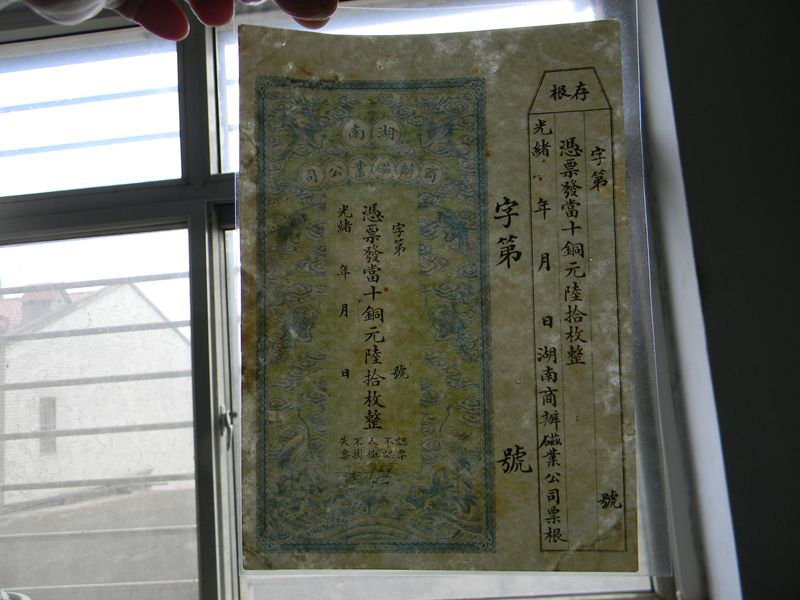 存根
字第 號
憑票發當十銅元陸拾枚整
光緒 年 月 日湖南商辦磁業公司票根
字第 號
湖南
商辦磁業公司
字第 號
憑票發當十銅元陸拾枚整
光緒 年 月 日
認票
不認
人
不掛
失票